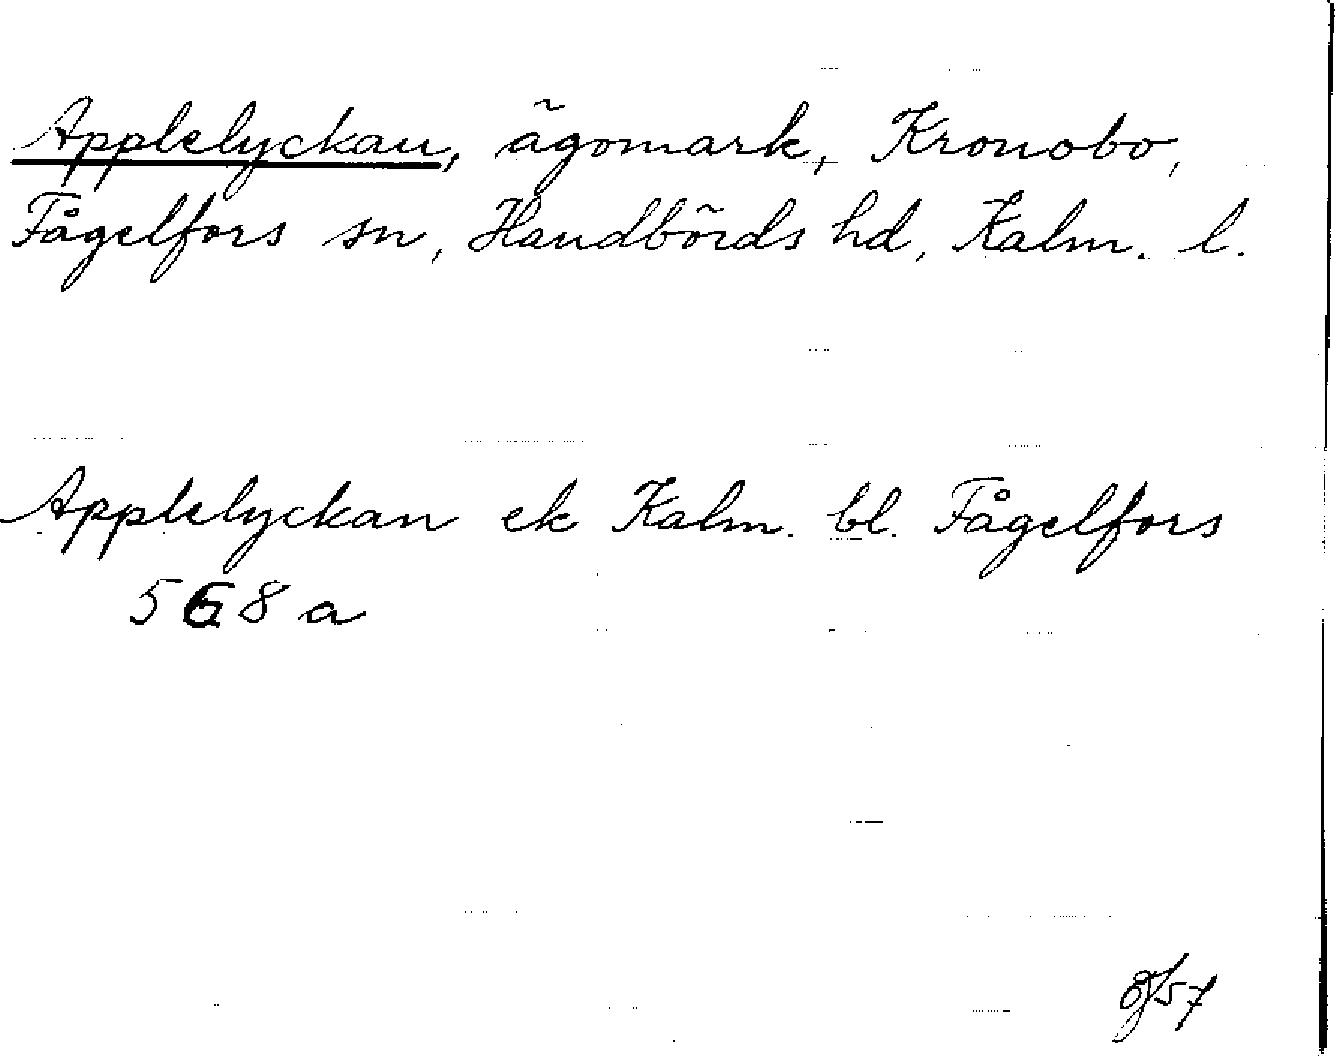 Applelyckan, ägomark, Kronobo,
Fågelfors sn, Handbörds hd, Kalm. l.
Applelyckan ek Kalm. bl. Fågelfors
568 a